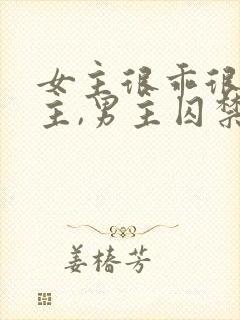 女主很乖很
主,男主囚禁
姜椿芳